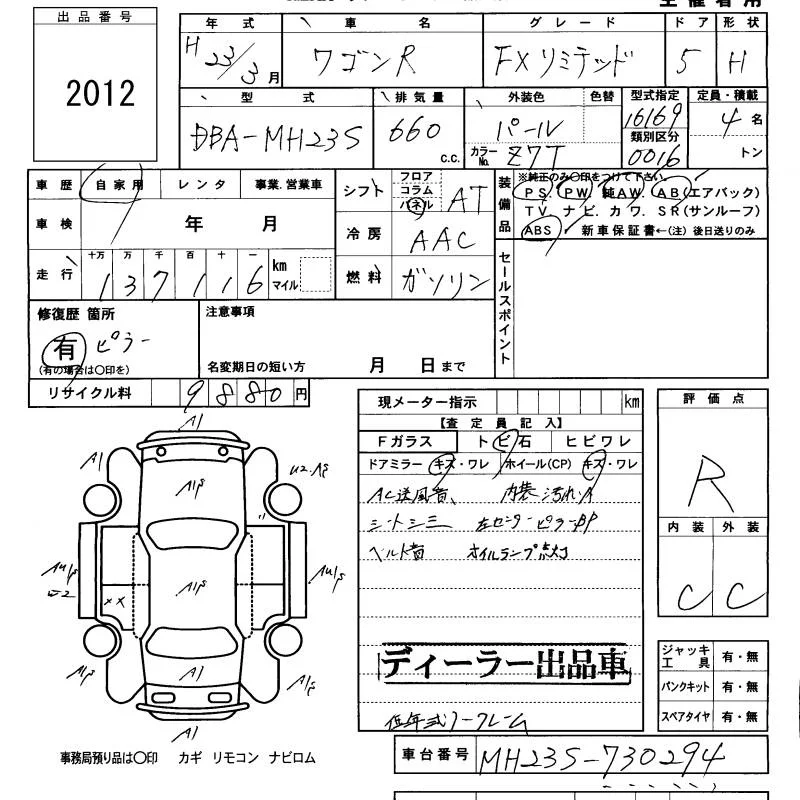 出品番号
2012
年式 車名 グレード ドア 形状
H 23/3月 ワゴンR FXリミテッド 5 H
型式 排気量 外装色 色替 型式指定 定員・積載
DBA-MH23S 660 c.c. パール 16169 4名
カラーNo. Z7T 類別区分 0016 トン
車歴 自家用 レンタ 事業.営業車
車検 年 月
走行 十万 万 千 百 十 一
137116 km マイル
シフト フロア コラム パネル AT
冷房 AAC
燃料 ガソリン
装備品
※純正のみ○印をつけて下さい。
PS. PW. 純AW. AB(エアバック)
TV. ナビ. カワ. SR(サンルーフ)
ABS 新車保証書←(注) 後日送りのみ
セールスポイント
修復歴 箇所
有 ピラー
(有の場合は○印を)
注意事項
名変期日の短い方 月 日まで
リサイクル料 9880円
現メーター指示 km
【査定員記入】
Fガラス トビ石 ヒビワレ
ドアミラー キズ・ワレ ホイール(CP) キズ・ワレ
AC送風音、 内装汚れA
シートシミ 左センターピラーPP
ベルト音 オイルランプ点灯
ディーラー出品車
低年式ノークレーム
評価点
R
内装 外装
C C
ジャッキ工具 有・無
パンクキット 有・無
スペアタイヤ 有・無
A1
A1 U2.
A1
××
A1
A1
事務局預り品は○印 カギ リモコン ナビロム
車台番号 MH23S-730294